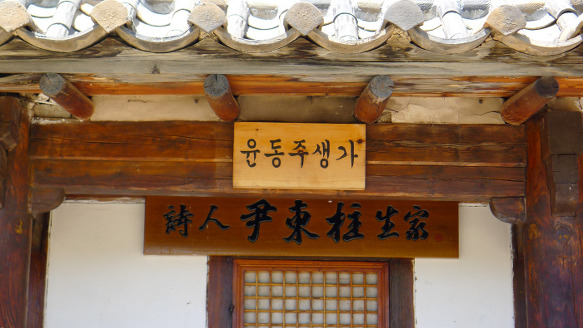 윤동주생가
詩人尹東柱生家